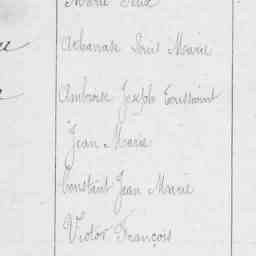 Marie
Athanase Louis Marie
Ambroise Joseph Toussaint
Jean Marie
Constant Jean Marie
Victor François